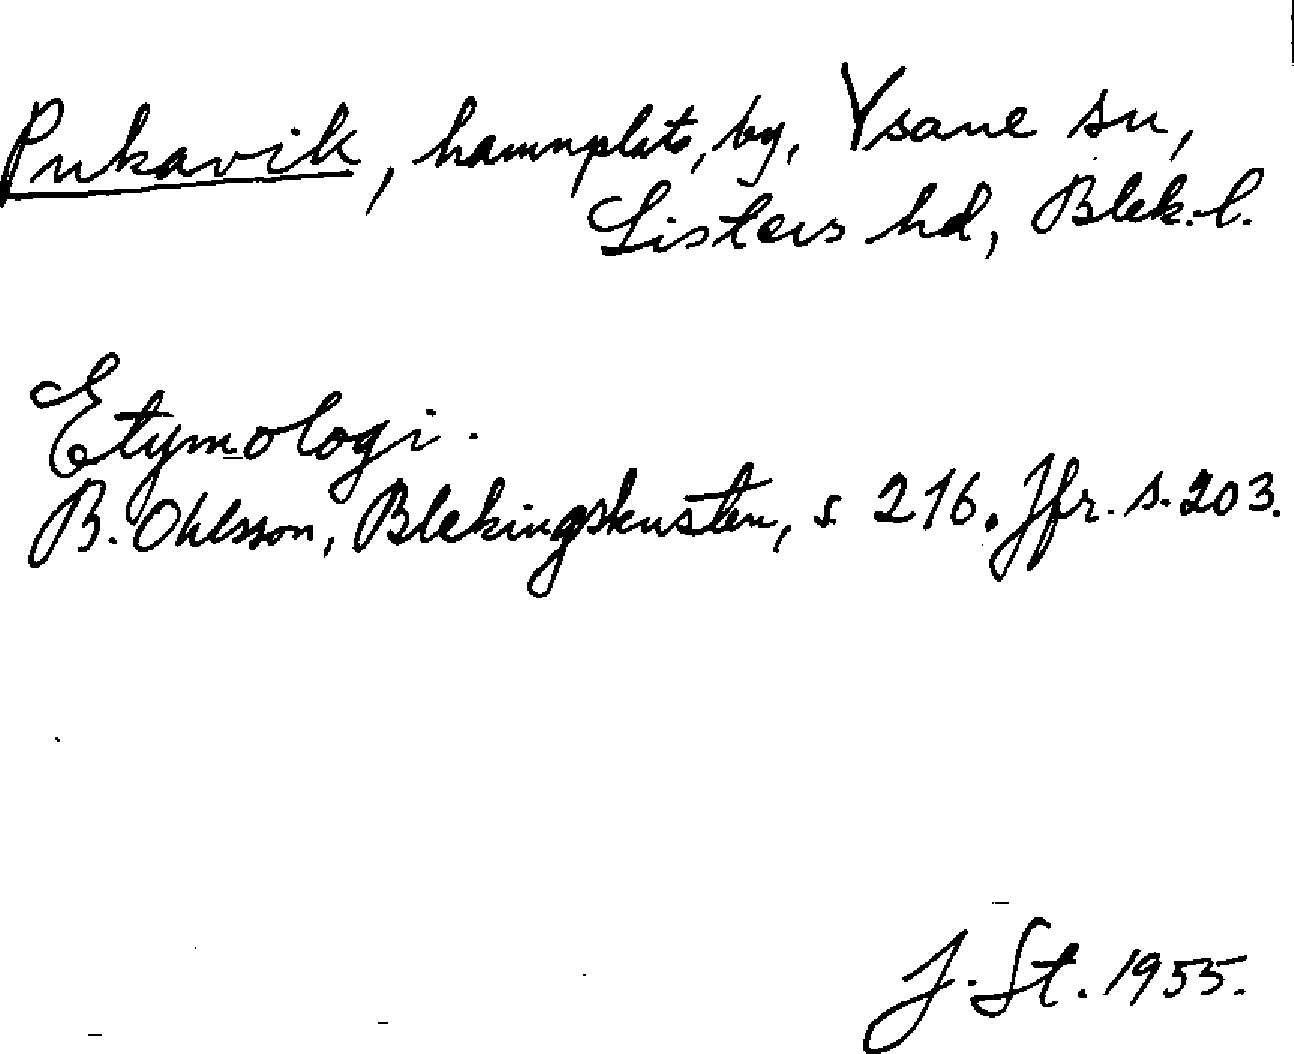 Pukavik, hamnplats, by, Ysane sn,
Listers hd, Blek. l.
Etymologi.
B. Ohlsson, Blekingskusten, s. 216. Jfr. s. 203.
J. St. 1955.